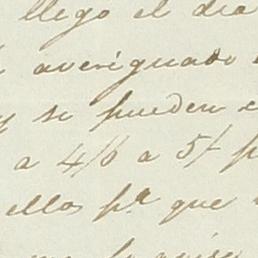 llego el dia
averiguado
y se pueden
a 4/6 a 5/
ellos pª que